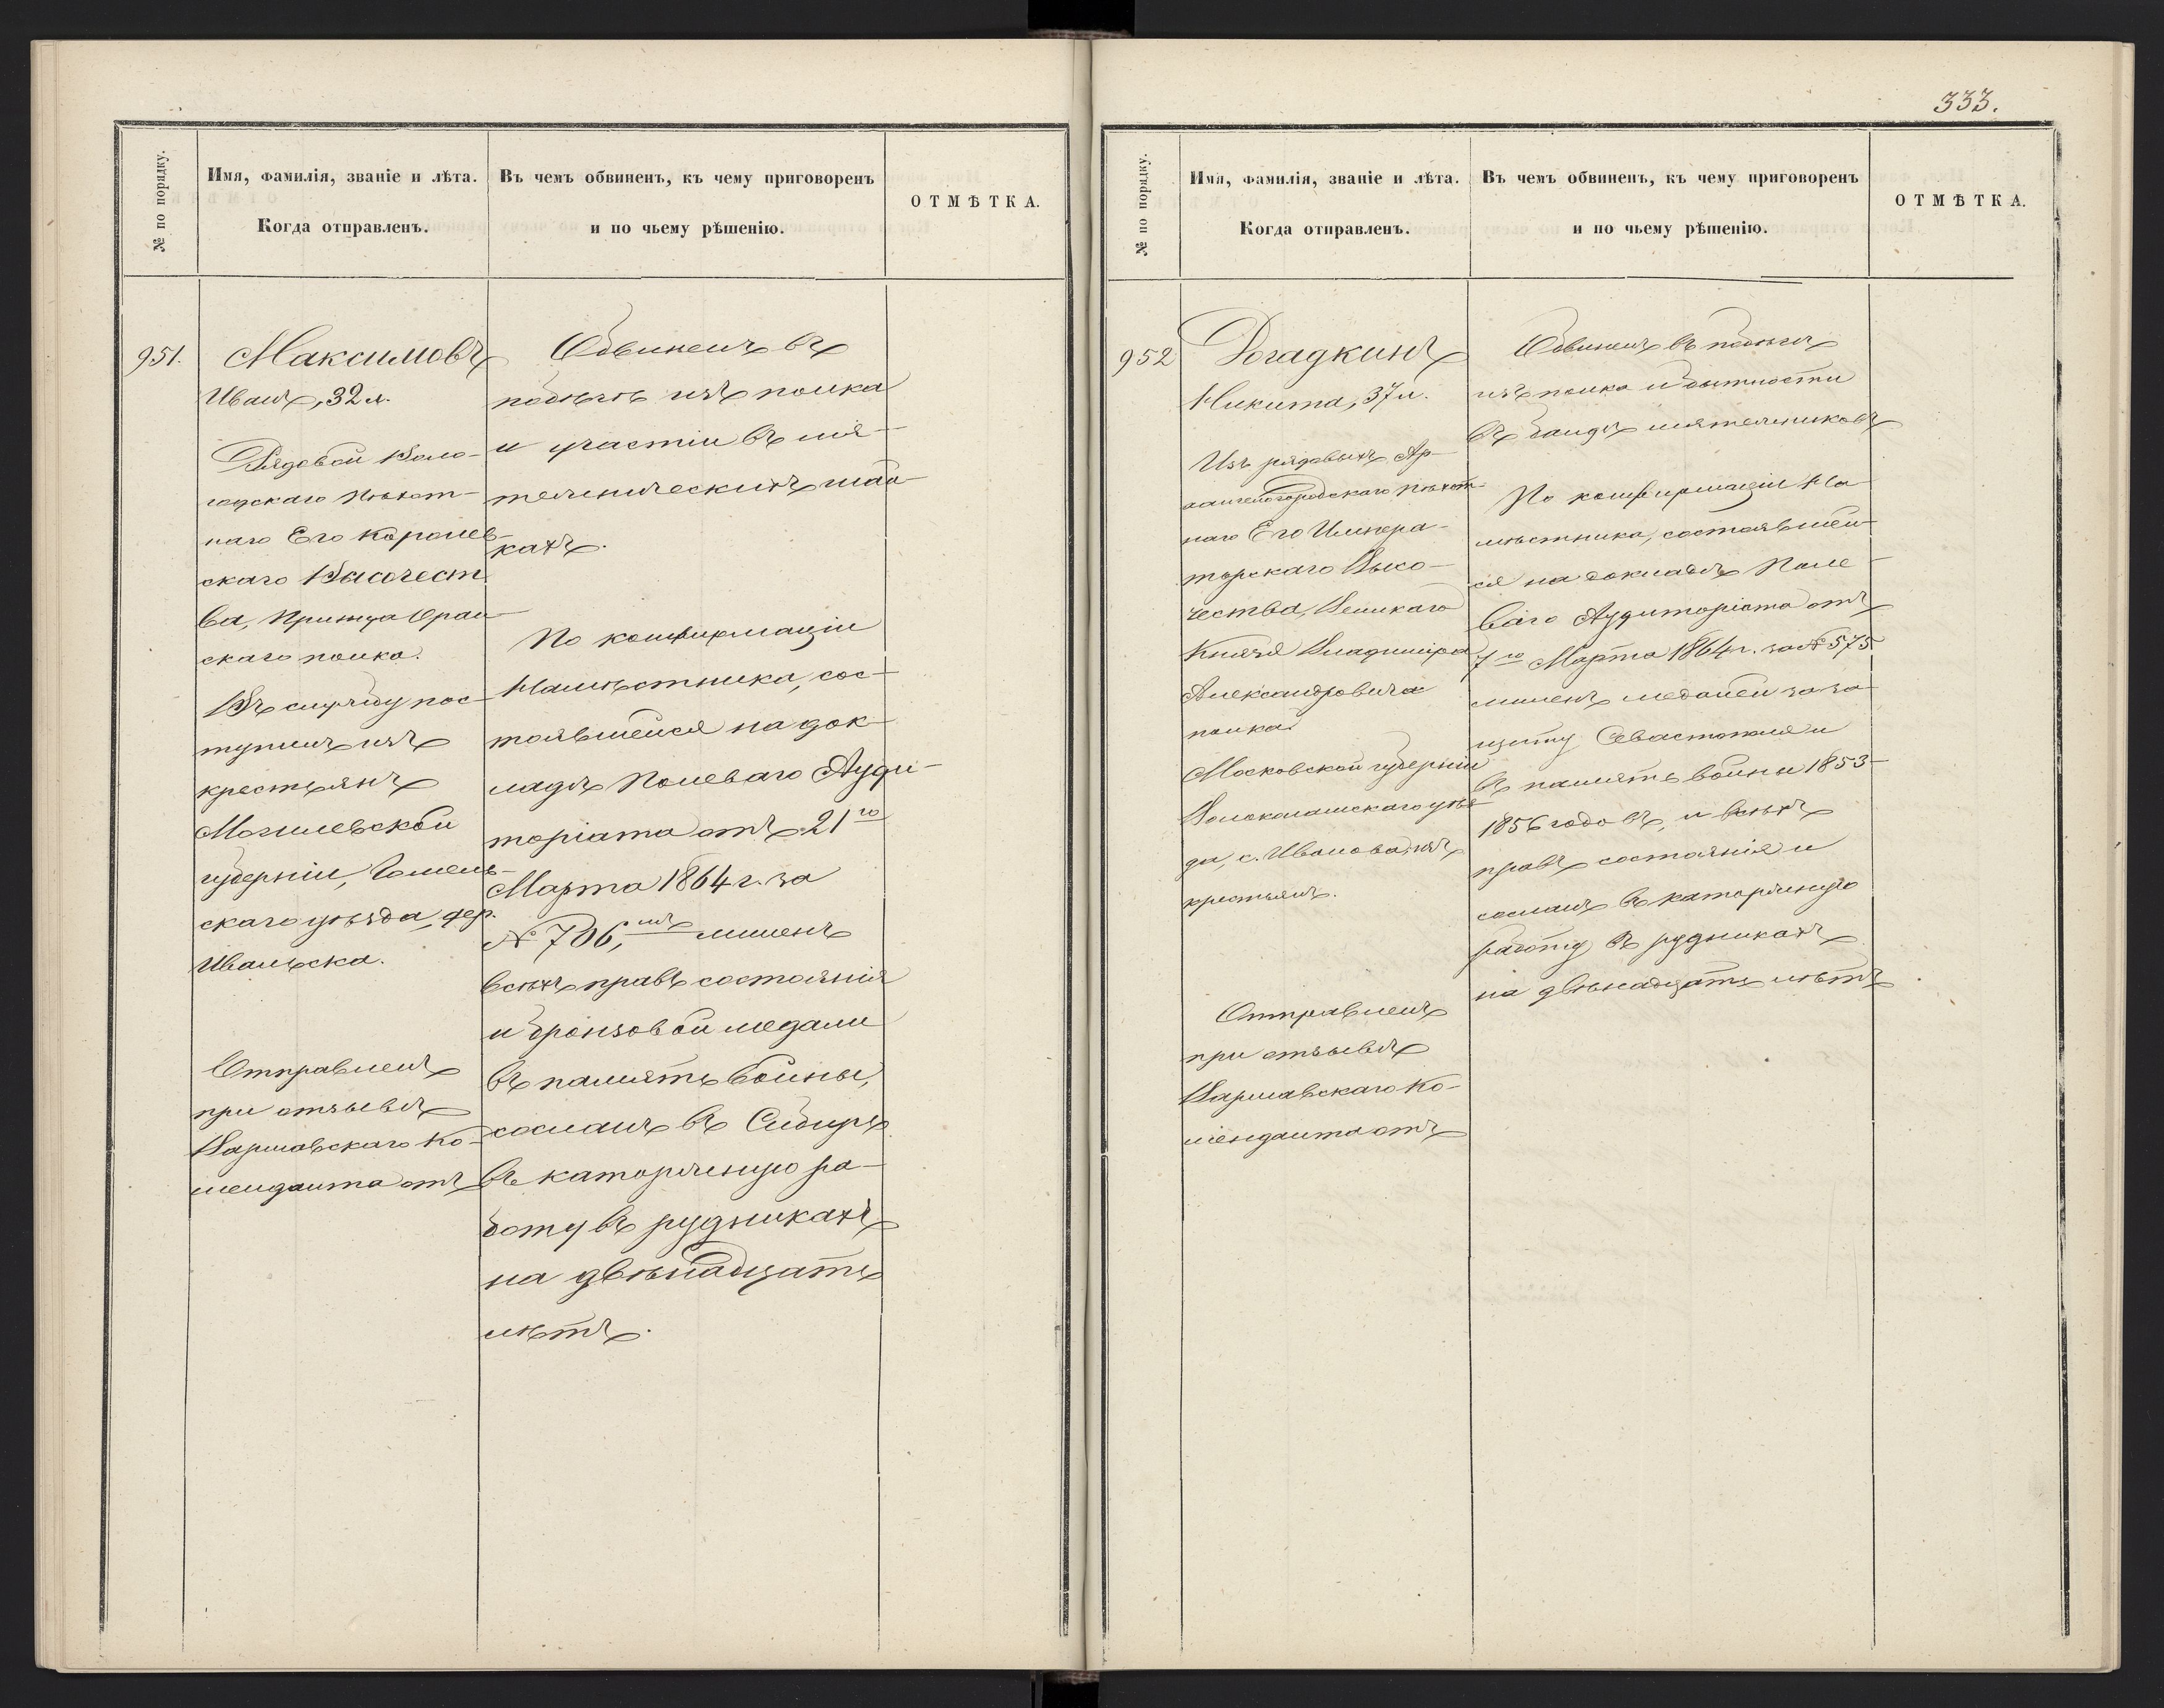 № по порядку.
Имя, фамилія, званіе и лѣта.
Когда отправленъ.
Въ чемъ обвиненъ, къ чему приговоренъ
и по чьему рѣшенію.
ОТМѢТКА.
951.
Максимовъ
Иванъ, 32 л.
Рядовой Воло-
годскаго Пѣхот-
наго Его Королев-
скаго Высочест
ва, Принца Оран-
скаго полка.
Въ службу пос-
тупилъ изъ
крестьянъ
Могилевской
губерніи, Гомель-
скаго уѣзда, дер.
Иваньска.
Отправленъ
при отзывѣ
Варшавскаго Ко-
менданта отъ
Обвиненъ въ
побѣгѣ изъ полка
и участіи въ мя-
тежническихъ шай-
кахъ.
По конфирмаціи
Намѣстника, сос-
тоявшейся на док-
ладѣ Полеваго Ауди-
торіата отъ 21го
Марта 1864 г. за
№ 706, мъ лишенъ
всѣхъ правъ состоянія
и бронзовой медали
въ память войны,
сосланъ въ Сибирь
въ каторжную ра-
боту въ рудникахъ
на двѣнадцать
лѣтъ.
333.
№ по порядку.
Имя, фамилія, званіе и лѣта.
Когда отправленъ.
Въ чемъ обвиненъ, къ чему приговоренъ
и по чьему рѣшенію.
ОТМѢТКА.
952
Догадкинъ
Никита, 37 л.
Изъ рядовыхъ Ар-
хангелогородскаго Пѣхот-
наго Его Импера-
торскаго Высо-
чества, Великаго
Князя Владиміра
Александровича
полка.
Московской губерніи
Волоколамскаго уѣз-
да, с. Иванова, изъ
крестьянъ.
Отправленъ
при отзывѣ
Варшавскаго Ко-
менданта отъ
Обвиненъ въ побѣгѣ
изъ полка и бытности
въ бандѣ мятежниковъ
По конфирмаціи На-
мѣстника, состоявшей-
ся на докладѣ Поле-
ваго Аудиторіата отъ
7го Марта 1864 г. за № 575
лишенъ медалей за за-
щиту Севастополя и
въ память войны 1853-
1856 годовъ, и всѣхъ
правъ состоянія и
сосланъ въ каторжную
работу въ рудникахъ
на двѣнадцать лѣтъ